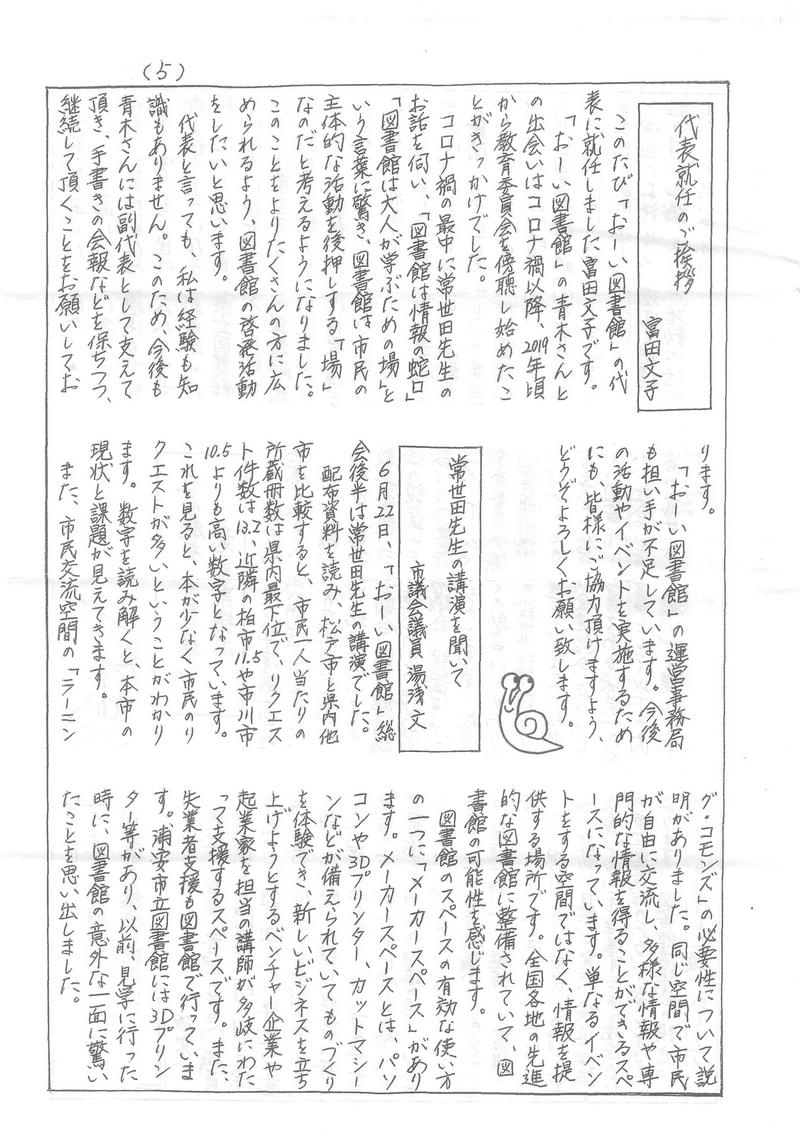 (5)
代表就任のご挨拶
冨田文子
このたび「おーい図書館」の代
表に就任しました冨田文子です。
「おーい図書館」の青木さんと
の出会いはコロナ禍以降、2019年頃
から教育委員会を傍聴し始めたこ
とがきっかけでした。
コロナ禍の最中に常世田先生の
お話を伺い、「図書館は情報の蛇口」
「図書館は大人が学ぶための場」と
いう言葉に驚き、図書館は市民の
主体的な活動を後押しする「場」
なのだと考えるようになりました。
このことをよりたくさんの方に広
められるよう、図書館の啓発活動
をしたいと思います。
代表と言っても、私は経験も知
識もありません。このため、今後も
青木さんには副代表として支えて
頂き、手書きの会報などを保ちつつ、
継続して頂くことをお願いしてお
ります。
「おーい図書館」の運営事務局
も担い手が不足しています。今後
の活動やイベントを実施するため
にも、皆様にご協力頂けますよう、
どうぞよろしくお願い致します。
常世田先生の講演を聞いて
市議会議員 湯浅 文
6月22日、「おーい図書館」総
会後半は常世田先生の講演でした。
配布資料を読み、松戸市と県内他
市を比較すると、市民一人当たりの
所蔵冊数は県内最下位で、リクエス
ト件数は13.2、近隣の柏市11.5や市川市
10.5よりも高い数字となっています。
これを見ると、本が少なく市民のリ
クエストが多いということがわかり
ます。数字を読み解くと、本市の
現状と課題が見えてきます。
また、市民交流空間の「ラーニン
グ・コモンズ」の必要性について説
明がありました。同じ空間で市民
が自由に交流し、多様な情報や専
門的な情報を得ることができるスペ
ースになっています。単なるイベン
トをする空間ではなく、情報を提
供する場所です。全国各地の先進
的な図書館に整備されていて、図
書館の可能性を感じます。
図書館のスペースの有効な使い方
の一つに「メーカースペース」があり
ます。メーカースペースとは、パソ
コンや3Dプリンター、カットマシー
ンなどが備えられていてものづくり
を体験でき、新しいビジネスを立ち
上げようとするベンチャー企業や
起業家を担当の講師が多岐にわた
って支援するスペースです。また、
失業者支援も図書館で行っていま
す。浦安市立図書館には3Dプリン
ター等があり、以前、見学に行った
時に、図書館の意外な一面に驚い
たことを思い出しました。